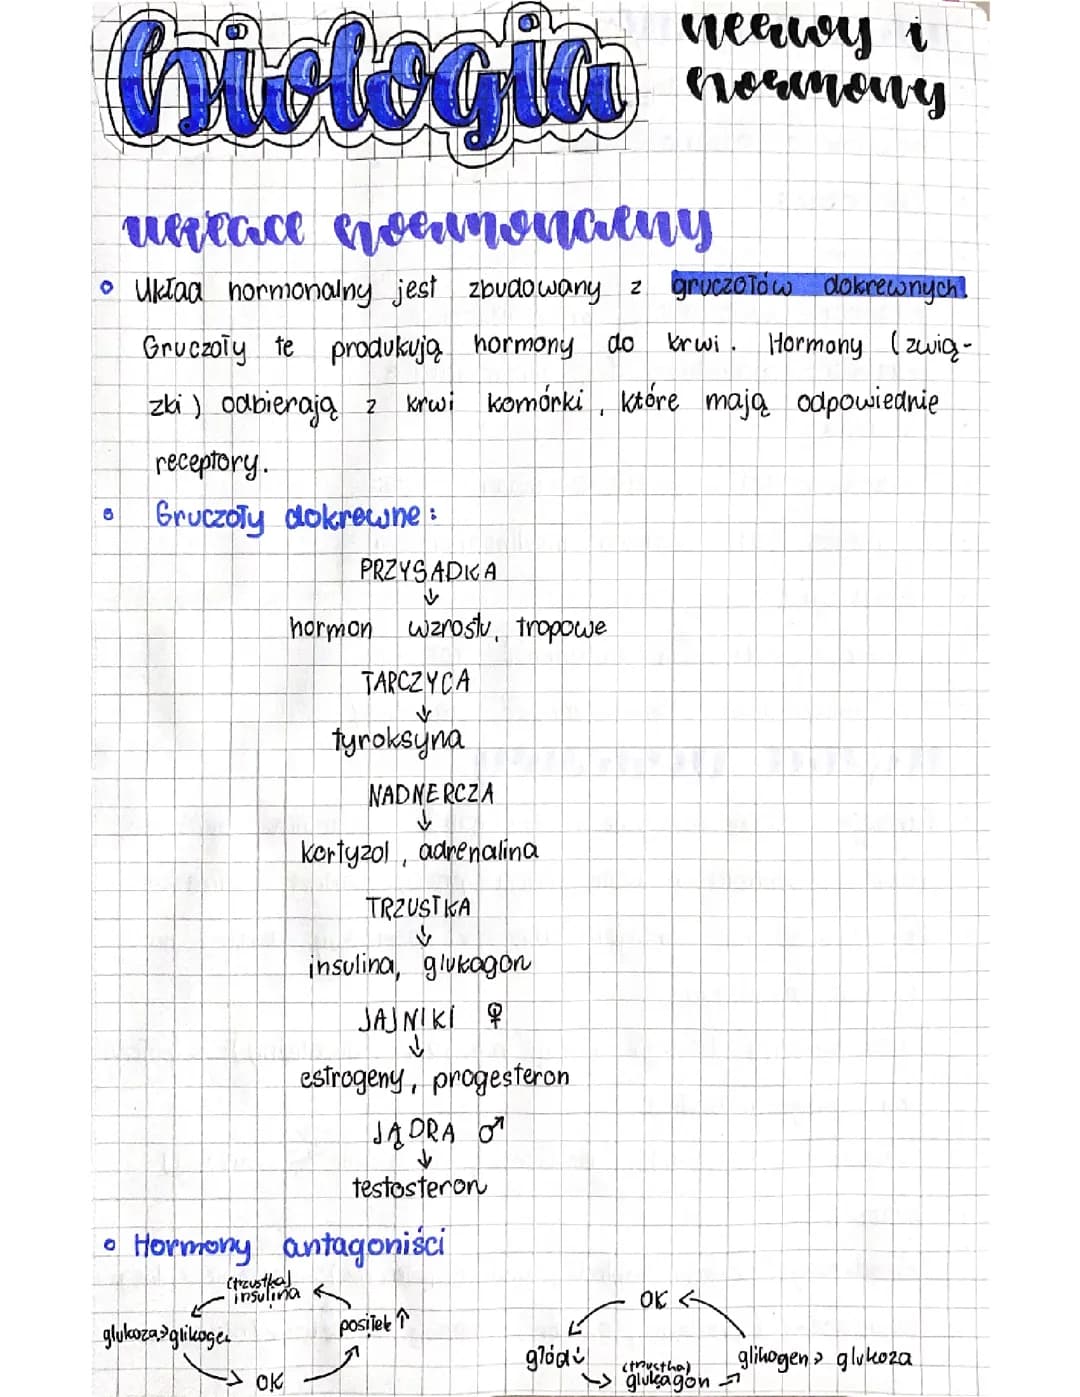 biologia
nerwy i
hormony
układ hormonalny
Układ hormonalny jest zbudowany z gruczołów dokrewnych.
Gruczoły te produkują hormony do krwi. Hormony (zwią-
zki) odbierają z krwi komórki, które mają odpowiednie
receptory.
Gruczoły dokrewne:
PRZYSADKA
↓
hormon wzrostu, tropowe
TARCZYCA
↓
tyroksyna
NADNERCZA
↓
kortyzol, adrenalina
TRZUSTKA
↓
insulina, glukagon
JAJNIKI ♀
↓
estrogeny, progesteron
JĄDRA ♂
↓
testosteron
Hormony antagoniści
(trzustka)
insulina
posiłek ↑
glukoza > glikogen
OK
OK
głód ↓
(trzustka)
glukagon
glikogen > glukoza